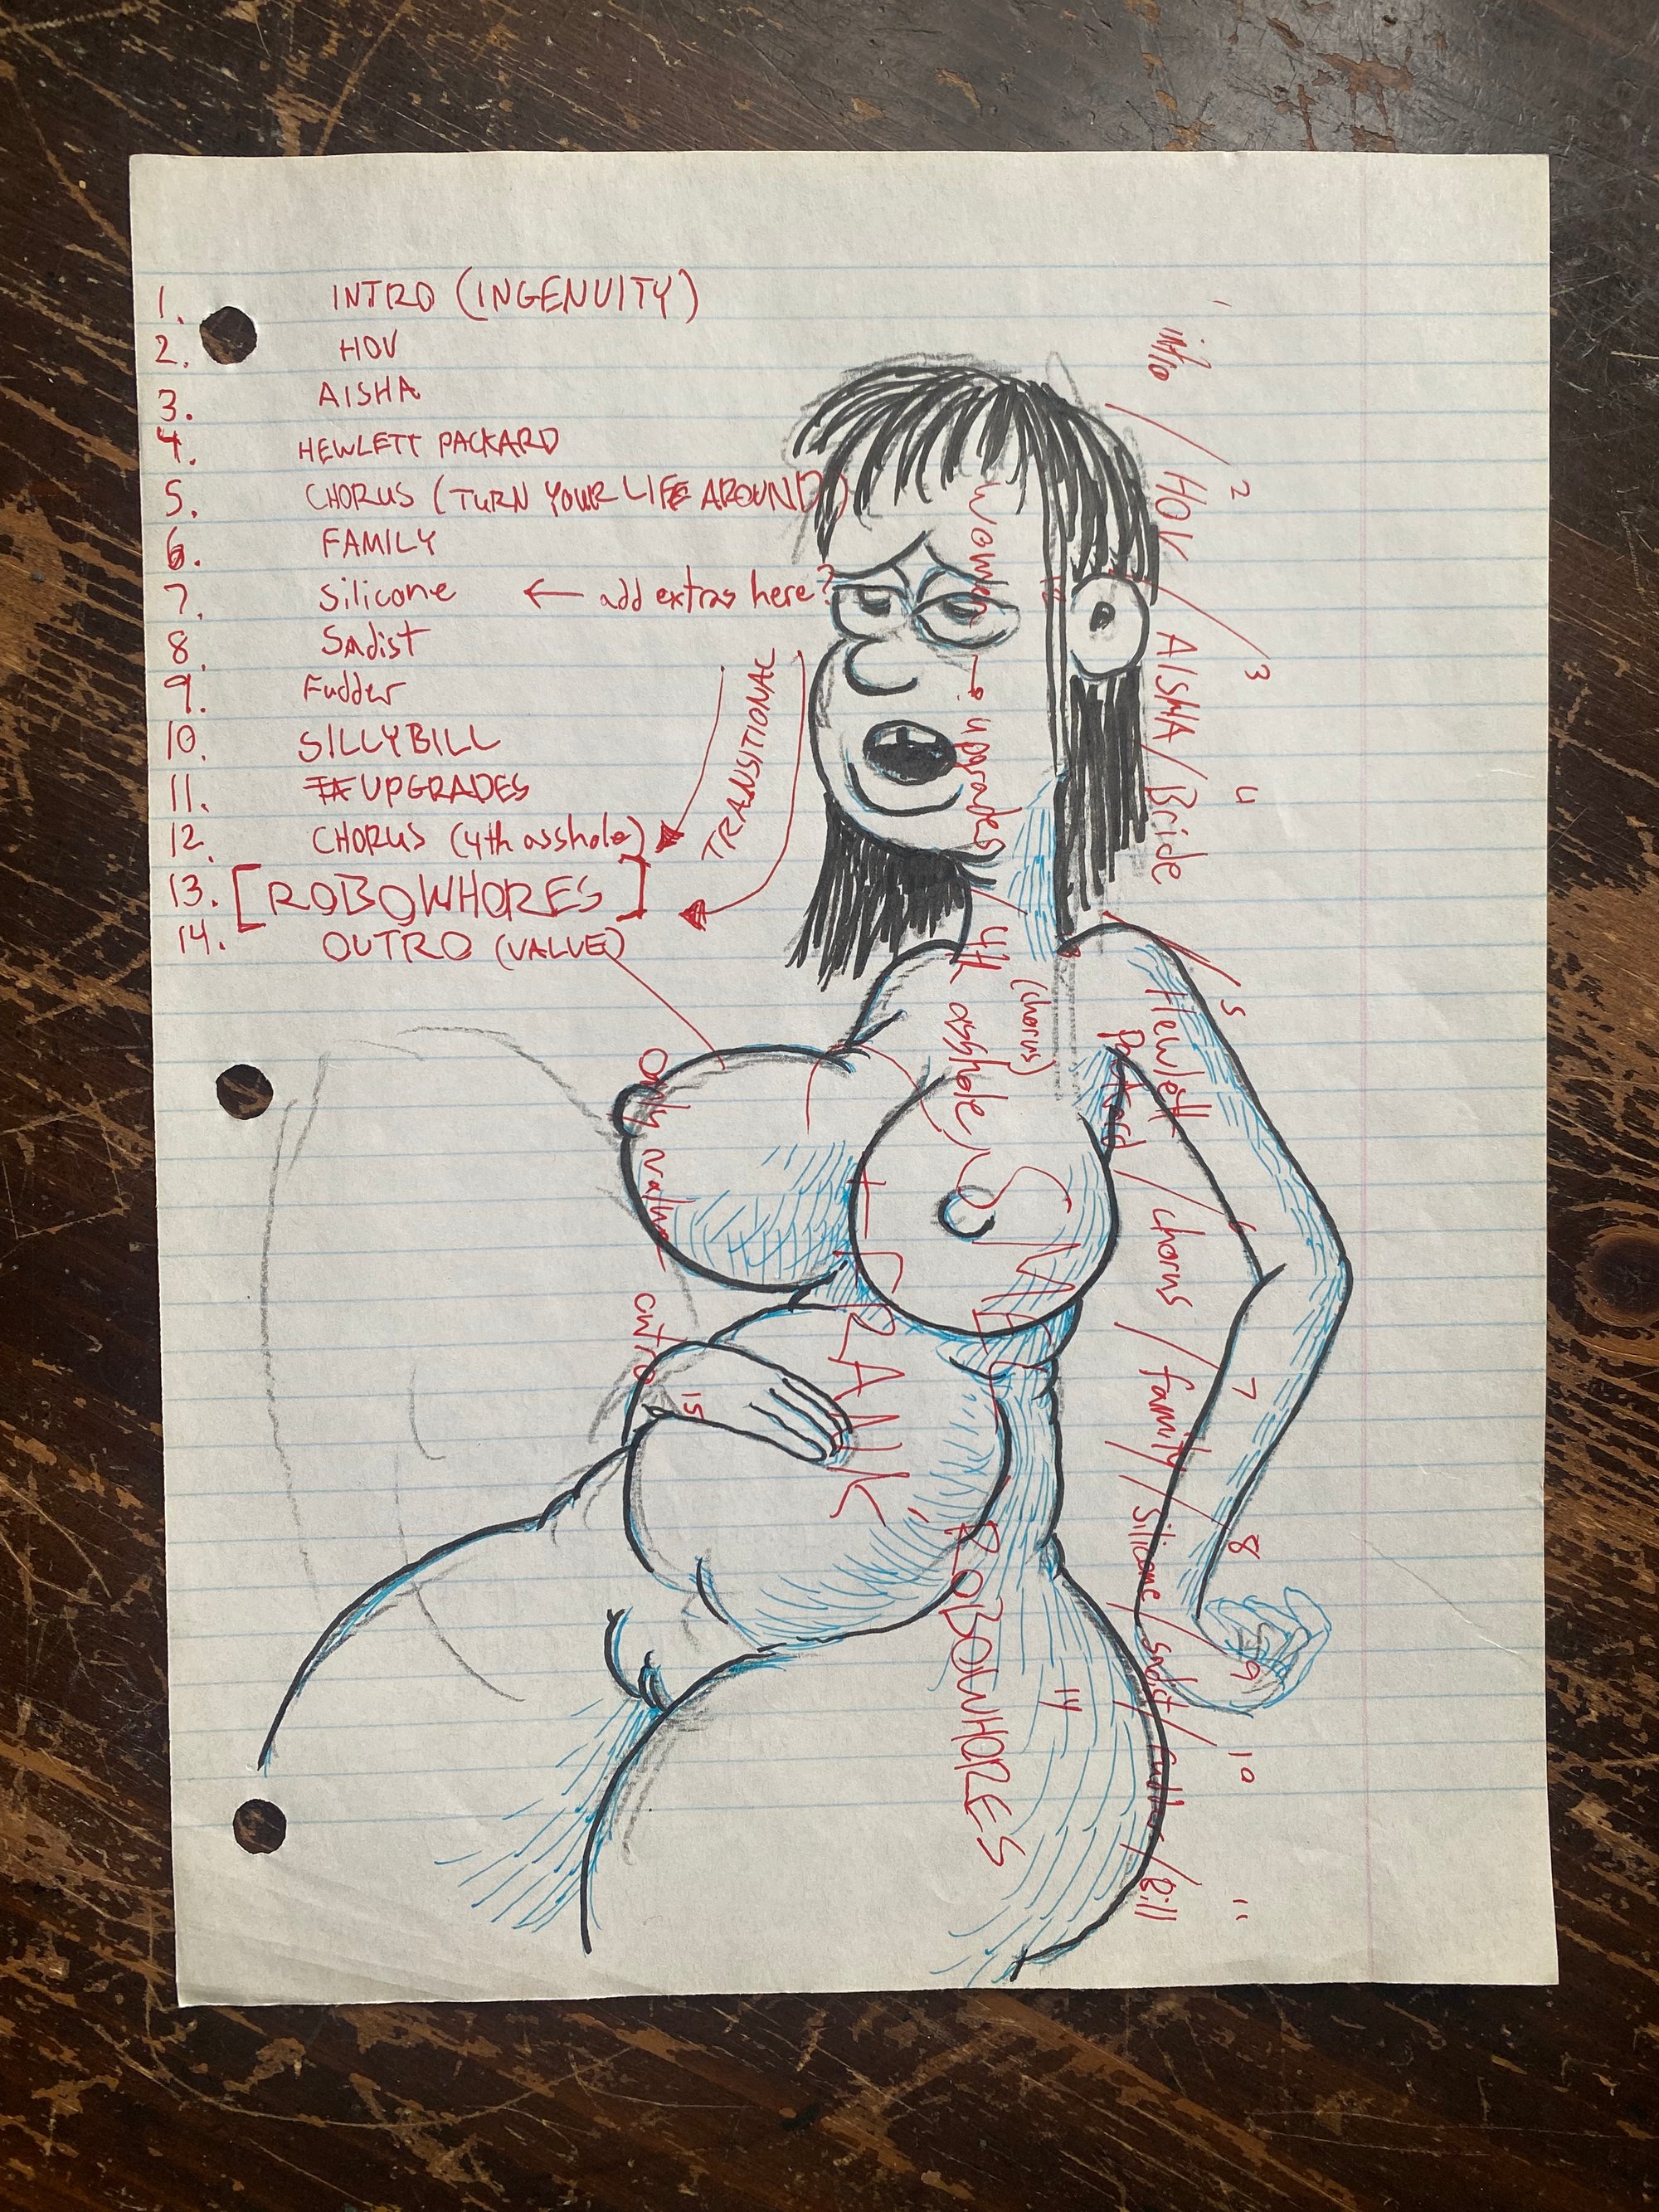 1. INTRO (INGENUITY)
2. HOV
3. AISHA
4. HEWLETT PACKARD
5. CHORUS (TURN YOUR LIFE AROUND)
6. FAMILY
7. Silicone ← add extras here?
8. Sadist
9. Fudder
10. SILLYBILL
11. UPGRADES
12. CHORUS (4th asshole)
13. [ROBOWHORES]
14. OUTRO (VALUE)
TRANSITIONAL
1 2 3 4 5 6 7 8 9 10 11
intro / HOV / AISHA / Bride / Hewlett / chorus / family / Silicone / sadist / / Bill
Packard
women → upgrades / 4th asshole, SMELL
(chorus)
CRANK, ROBOWHORES
14
only value
outro 15